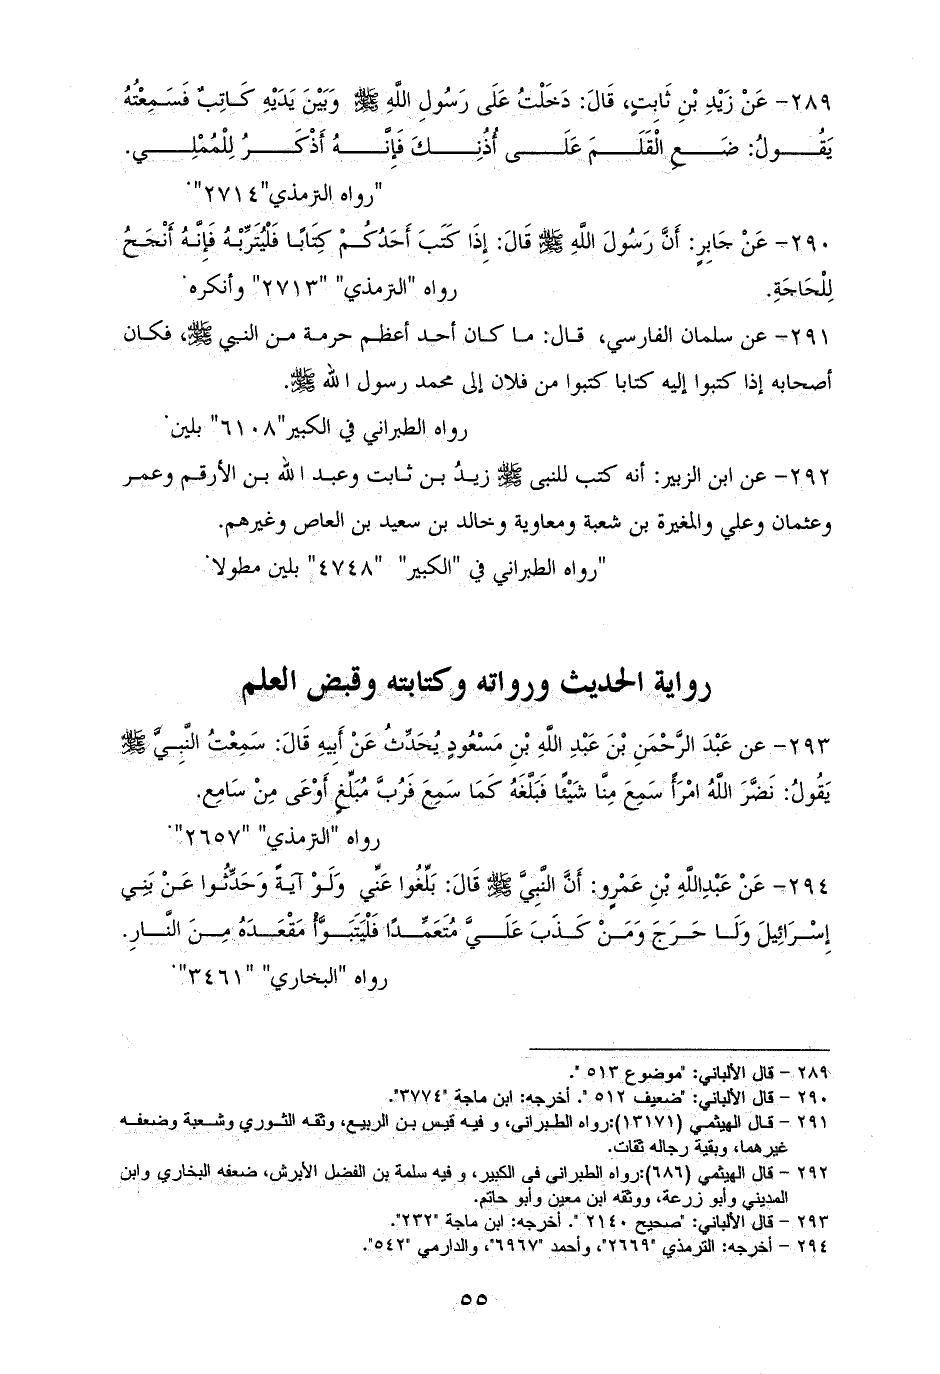 ٢٨٩- عَنْ زَيْدِ بْنِ ثَابِتٍ، قَالَ: دَخَلْتُ عَلَى رَسُولِ اللَّهِ ﷺ وَبَيْنَ يَدَيْهِ كَاتِبٌ فَسَمِعْتُهُ
يَقُولُ: ضَعِ الْقَلَمَ عَلَى أُذُنِكَ فَإِنَّهُ أَذْكَرُ لِلْمُمْلِي.
"رواه الترمذي"٢٧١٤".
٢٩٠- عَنْ جَابِرٍ: أَنَّ رَسُولَ اللَّهِ ﷺ قَالَ: إِذَا كَتَبَ أَحَدُكُمْ كِتَابًا فَلْيُتَرِّبْهُ فَإِنَّهُ أَنْجَحُ
لِلْحَاجَةِ. رواه "الترمذي" "٢٧١٣" وأنكره.
٢٩١- عن سلمان الفارسي، قال: ما كان أحد أعظم حرمة من النبي ﷺ، فكان
أصحابه إذا كتبوا إليه كتابا كتبوا من فلان إلى محمد رسول الله ﷺ.
رواه الطبراني في الكبير"٦١٠٨" بلين.
٢٩٢- عن ابن الزبير: أنه كتب للنبى ﷺ زيدُ بن ثابت وعبد الله بن الأرقم وعمر
وعثمان وعلي والمغيرة بن شعبة ومعاوية وخالد بن سعيد بن العاص وغيرهم.
"رواه الطبراني في "الكبير" "٤٧٤٨" بلين مطولا.
رواية الحديث ورواته وكتابته وقبض العلم
٢٩٣- عن عَبْدَ الرَّحْمَنِ بْنَ عَبْدِ اللَّهِ بْنِ مَسْعُودٍ يُحَدِّثُ عَنْ أَبِيهِ قَالَ: سَمِعْتُ النَّبِيَّ ﷺ
يَقُولُ: نَضَّرَ اللَّهُ امْرَأً سَمِعَ مِنَّا شَيْئًا فَبَلَّغَهُ كَمَا سَمِعَ فَرُبَّ مُبَلِّغٍ أَوْعَى مِنْ سَامِعٍ.
رواه "الترمذي" "٢٦٥٧".
٢٩٤- عَنْ عَبْدِاللَّهِ بْنِ عَمْرٍو: أَنَّ النَّبِيَّ ﷺ قَالَ: بَلِّغُوا عَنِّي وَلَوْ آيَةً وَحَدِّثُوا عَنْ بَنِي
إِسْرَائِيلَ وَلَا حَرَجَ وَمَنْ كَذَبَ عَلَيَّ مُتَعَمِّدًا فَلْيَتَبَوَّأْ مَقْعَدَهُ مِنَ النَّارِ.
رواه "البخاري" "٣٤٦١".
٢٨٩ - قال الألباني: "موضوع ٥١٣ ".
٢٩٠ - قال الألباني: "ضعيف ٥١٢ ". أخرجه: ابن ماجة "٣٧٧٤".
٢٩١ - قال الهيثمي (١٣١٧١):رواه الطبراني، و فيه قيس بن الربيع، وثقه الثوري وشعبة وضعفه
غيرهما، وبقية رجاله ثقات.
٢٩٢ - قال الهيثمي (٦٨٦):رواه الطبراني فى الكبير، و فيه سلمة بن الفضل الأبرش، ضعفه البخاري وابن
المديني وأبو زرعة، ووثقه ابن معين وأبو حاتم.
٢٩٣ - قال الألباني: "صحيح ٢١٤٠ ". أخرجه: ابن ماجة "٢٣٢".
٢٩٤ - أخرجه: الترمذي "٢٦٦٩"، وأحمد "٦٩٦٧"، والدارمي "٥٤٢".
٥٥